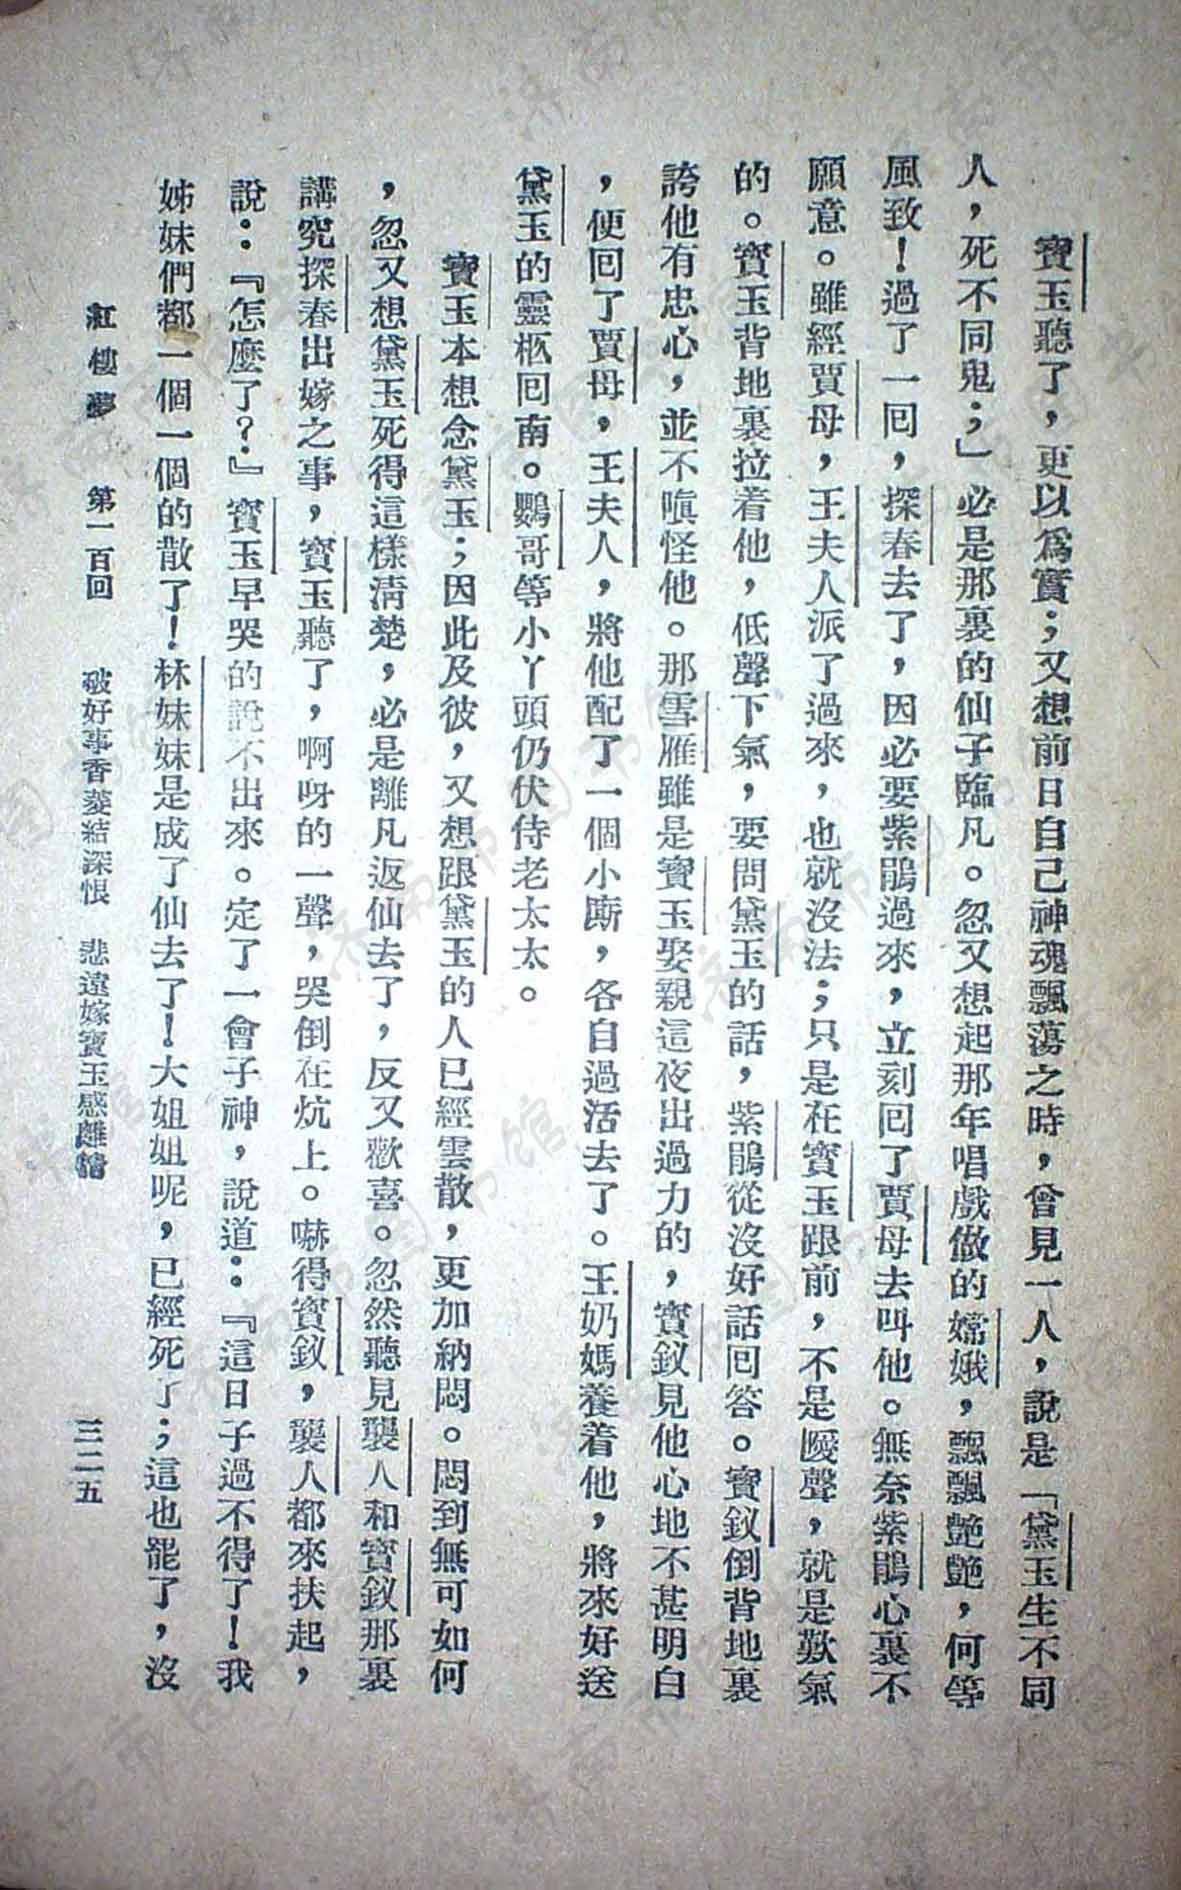 寶玉聽了，更以為實；又想前日自己神魂飄蕩之時，曾見一人，說是「黛玉生不同
人，死不同鬼；」必是那裏的仙子臨凡。忽又想起那年唱戲做的嫦娥，飄飄艷艷，何等
風致！過了一回，探春去了，因必要紫鵑過來，立刻回了賈母去叫他。無奈紫鵑心裏不
願意。雖經賈母，王夫人派了過來，也就沒法；只是在寶玉跟前，不是噯聲，就是歎氣
的。寶玉背地裏拉着他，低聲下氣，要問黛玉的話，紫鵑從沒好話回答。寶釵倒背地裏
誇他有忠心，並不嗔怪他。那雪雁雖是寶玉娶親這夜出過力的，寶釵見他心地不甚明白
，便回了賈母，王夫人，將他配了一個小廝，各自過活去了。王奶媽養着他，將來好送
黛玉的靈柩回南。鸚哥等小丫頭仍伏侍老太太。
寶玉本想念黛玉；因此及彼，又想跟黛玉的人已經雲散，更加納悶。悶到無可如何
，忽又想黛玉死得這樣清楚，必是離凡返仙去了，反又歡喜。忽然聽見襲人和寶釵那裏
講究探春出嫁之事，寶玉聽了，啊呀的一聲，哭倒在炕上。嚇得寶釵，襲人都來扶起，
說：『怎麼了？』寶玉早哭的說不出來。定了一會子神，說道：『這日子過不得了！我
姊妹們都一個一個的散了！林妹妹是成了仙去了！大姐姐呢，已經死了；這也罷了，沒
紅樓夢　第一百回　破好事香菱結深恨　悲遠嫁寶玉感離情　三二五
济南市图书馆